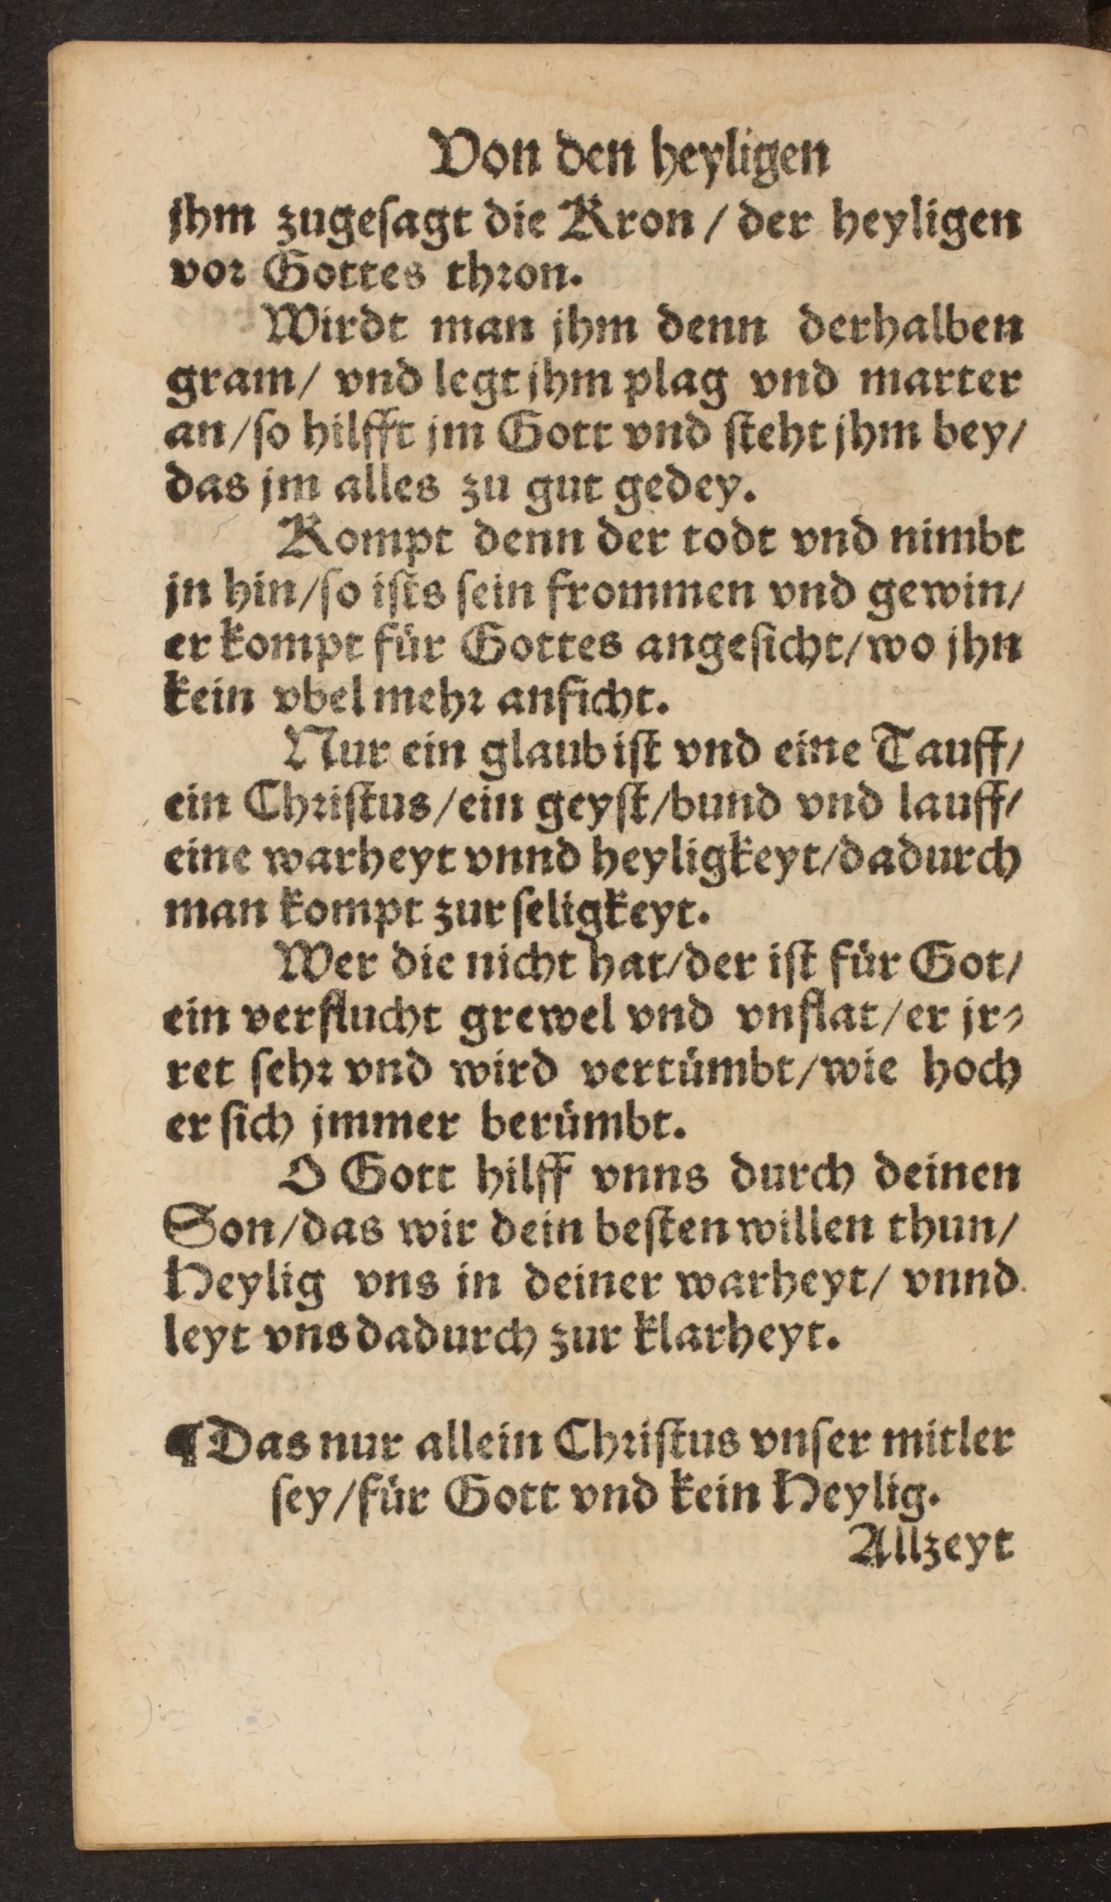 Von den heyligen
jhm zugeſagt die Kron / der heyligen
vor Gottes thron.
Wirdt man jhm denn derhalben
gram/ vnd legt jhm plag vnd marter
an/so hilfft jm Gott vnd ſteht jhm bey/
das jm alles zu gut gedey.
Kompt denn der todt vnd nimbt
jn hin/ſo iſts ſein frommen vnd gewin/
er kompt für Gottes angeſicht/wo jhn
kein vbel mehr anficht.
Nur ein glaub iſt vnd eine Tauff/
ein Chriſtus/ein geyſt/bund vnd lauff/
eine warheyt vnnd heyligkeyt/dadurch
man kompt zur ſeligkeyt.
Wer die nicht hat/der iſt für Got/
ein verflucht grewel vnd vnflat/er jr⸗
ret ſehr vnd wird vertümbt/wie hoch
er ſich jmmer berümbt.
O Gott hilff vnns durch deinen
Son/das wir dein beſten willen thun/
Heylig vns in deiner warheyt/ vnnd
leyt vns dadurch zur klarheyt.
¶ Das nur allein Chriſtus vnſer mitler
ſey/für Gott vnd kein Heylig.
Allzeyt